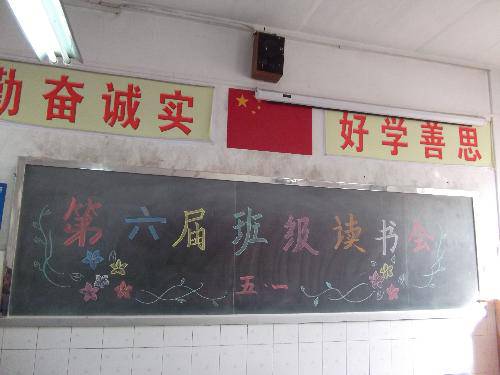 勤奋诚实
好学善思
第六届班级读书会
五·一